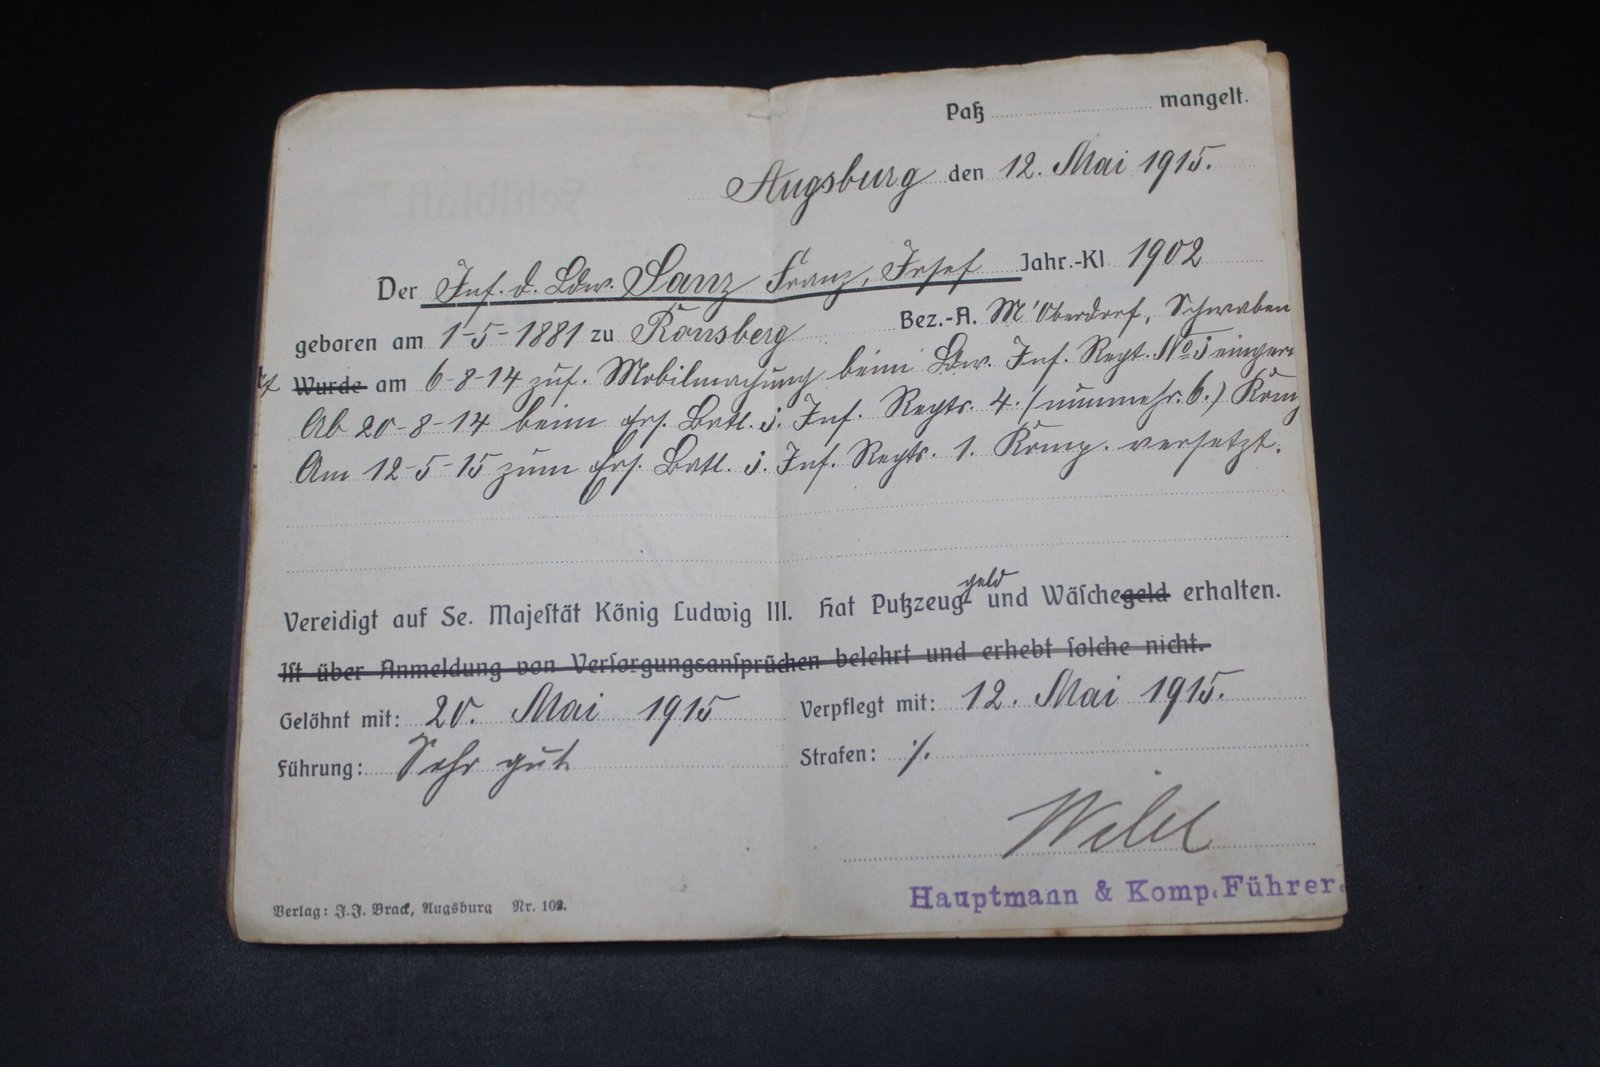 Paß ........ mangelt.
Augsburg den 12. Mai 1915.
Der Inf. d. Ldw. Sanz Franz, Josef Jahr.-Kl 1902
geboren am 1-5-1881 zu Ronsberg Bez.-A. M'Oberdorf, Schwaben
Wurde am 6-8-14 zuf. Mobilmachung beim Ldw. Inf. Regt. No 3
Ab 20-8-14 beim Ers. Batl. 3. Inf. Regts. 4. (nunmehr. 6.) Komp
Am 12-5-15 zum Ers. Batl. 3. Inf. Regts. 1. Komp. versetzt.
Vereidigt auf Se. Majeſtät König Ludwig III. Hat Putzzeug- geld und Wäſchegeld erhalten.
Iſt über Anmeldung von Verſorgungsanſprüchen belehrt und erhebt ſolche nicht.
Gelöhnt mit: 20. Mai 1915 Verpflegt mit: 12. Mai 1915.
Führung: Sehr gut Strafen: ./.
Hauptmann & Komp. Führer.
Verlag: J. J. Brack, Augsburg Nr. 102.